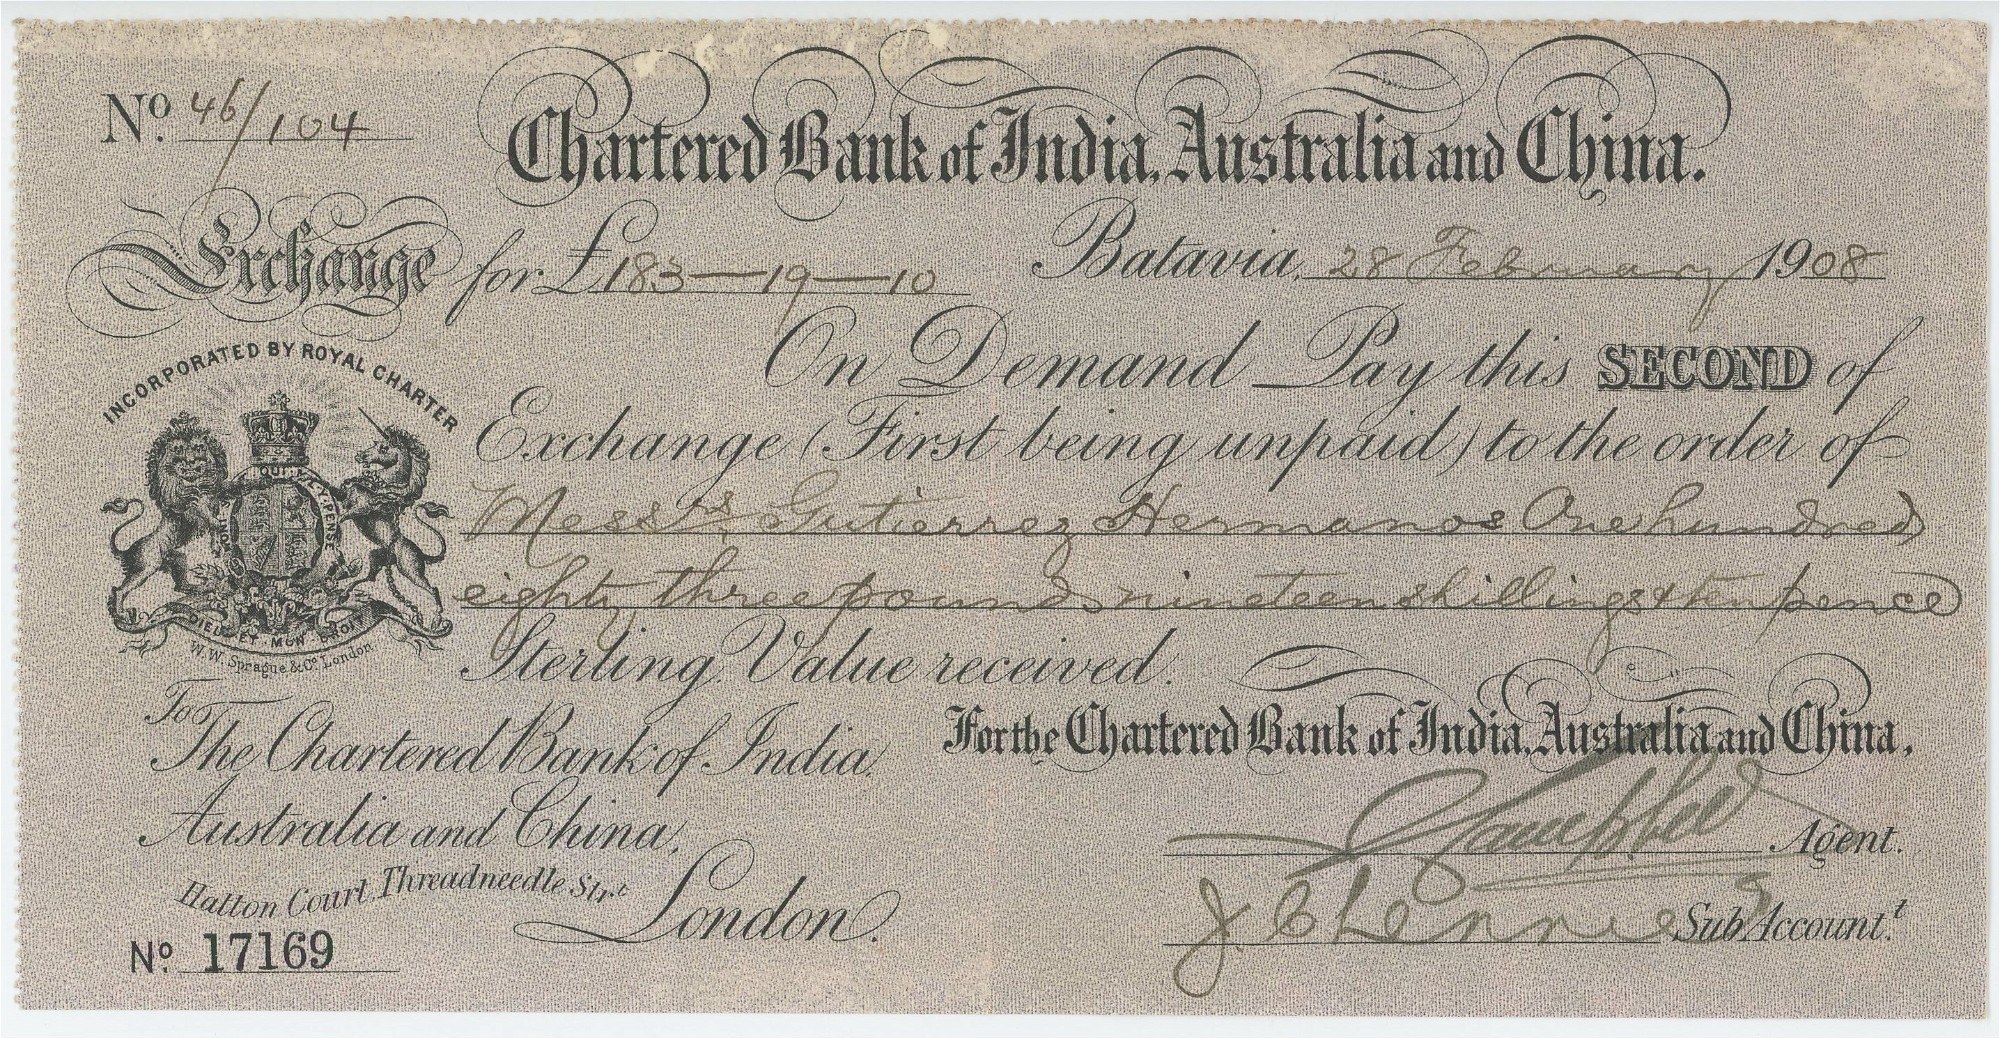 No. 46/104
Chartered Bank of India, Australia and China.
Exchange for £183—19—10 Batavia, 28 February 1908
On Demand Pay this SECOND of
Exchange (First being unpaid) to the order of
Messrs. Gutierrez Hermanos One hundred
eighty three pounds nineteen shillings & ten pence
Sterling. Value received.
INCORPORATED BY ROYAL CHARTER
HONI SOIT QUI MAL Y PENSE
DIEU ET MON DROIT
W. W. Sprague & Co. London
To
The Chartered Bank of India,
Australia and China,
Hatton Court, Threadneedle Strt.
London.
No. 17169
For the Chartered Bank of India, Australia and China,
Agent.
Sub Accountt.